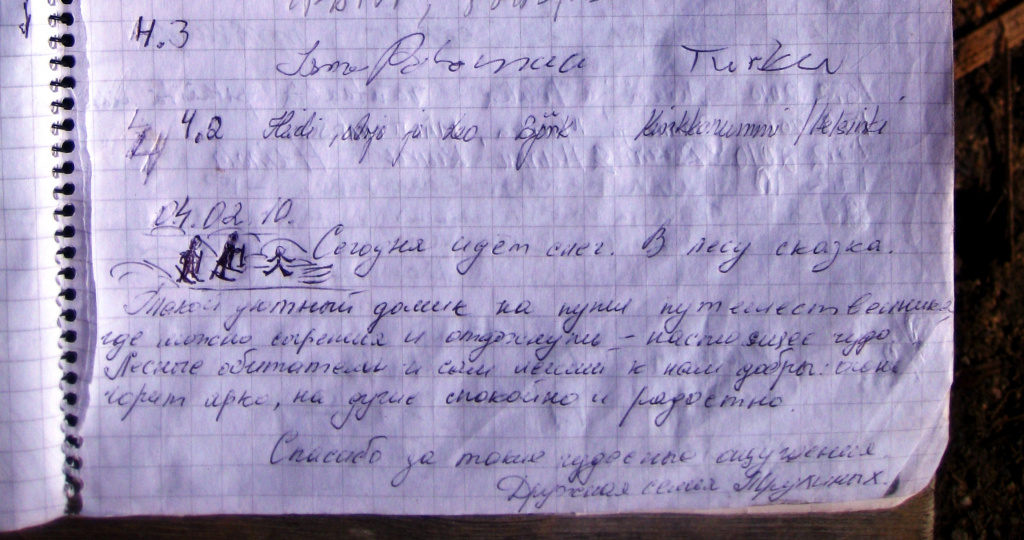 4.3
Turku
4.2 Heidi, ja Leo Björk Kirkkonummi / Helsinki
04.02.10.
Сегодня идёт снег. В лесу сказка.
Такой уютный домик на пути путешественника,
где можно согреться и отдохнуть – настоящее чудо.
Лесные обитатели и сам леший к нам добры: огонь
горит ярко, на душе спокойно и радостно.
Спасибо за такие чудесные ощущения.
Дружная семья